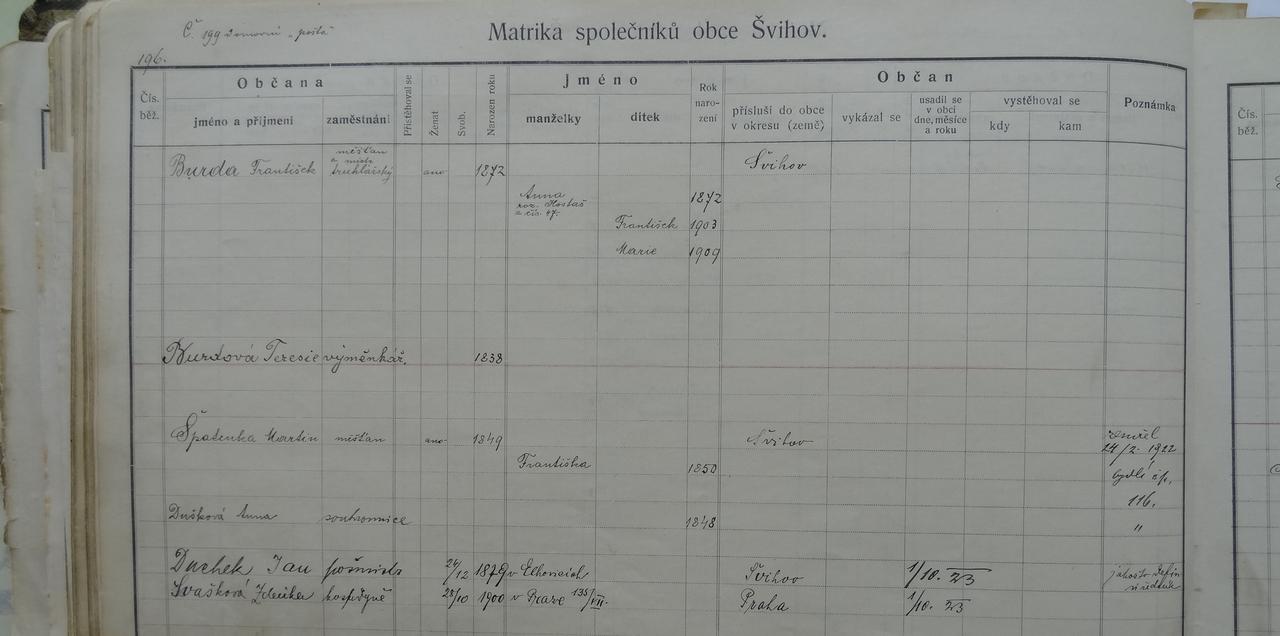 Č. 199 Domovní „pošta"
Matrika společníků obce Švihov.
196.
Čís. běž.
Občana
jméno a příjmení
zaměstnání
Přistěhoval se
Ženat
Svob.
Narozen roku
jméno
manželky
dítek
Rok naro-zení
Občan
přísluší do obce v okresu (země)
vykázal se
usadil se v obci dne, měsíce a roku
vystěhoval se
kdy
kam
Poznámka
Čís. běž.
Burda František měšťan a mistr truhlářský ano 1872 Švihov
Anna 1872
roz. Hostaš
z čís. 47.
František 1903
Marie 1909
Burdová Teresie výměnkář. 1838
Špatenka Martin měšťan ano 1849 Švihov zemřel
24/2. 1922
Františka 1850 bydlí čp.
116.
Dušková Anna soukromnice 1848 "
Duchek Jan 24/12 1879 v Švihov 1/10. 23 jakožto
Svašková hospodyně 28/10 1900 v Praze 135/VII. Praha 1/10. 23